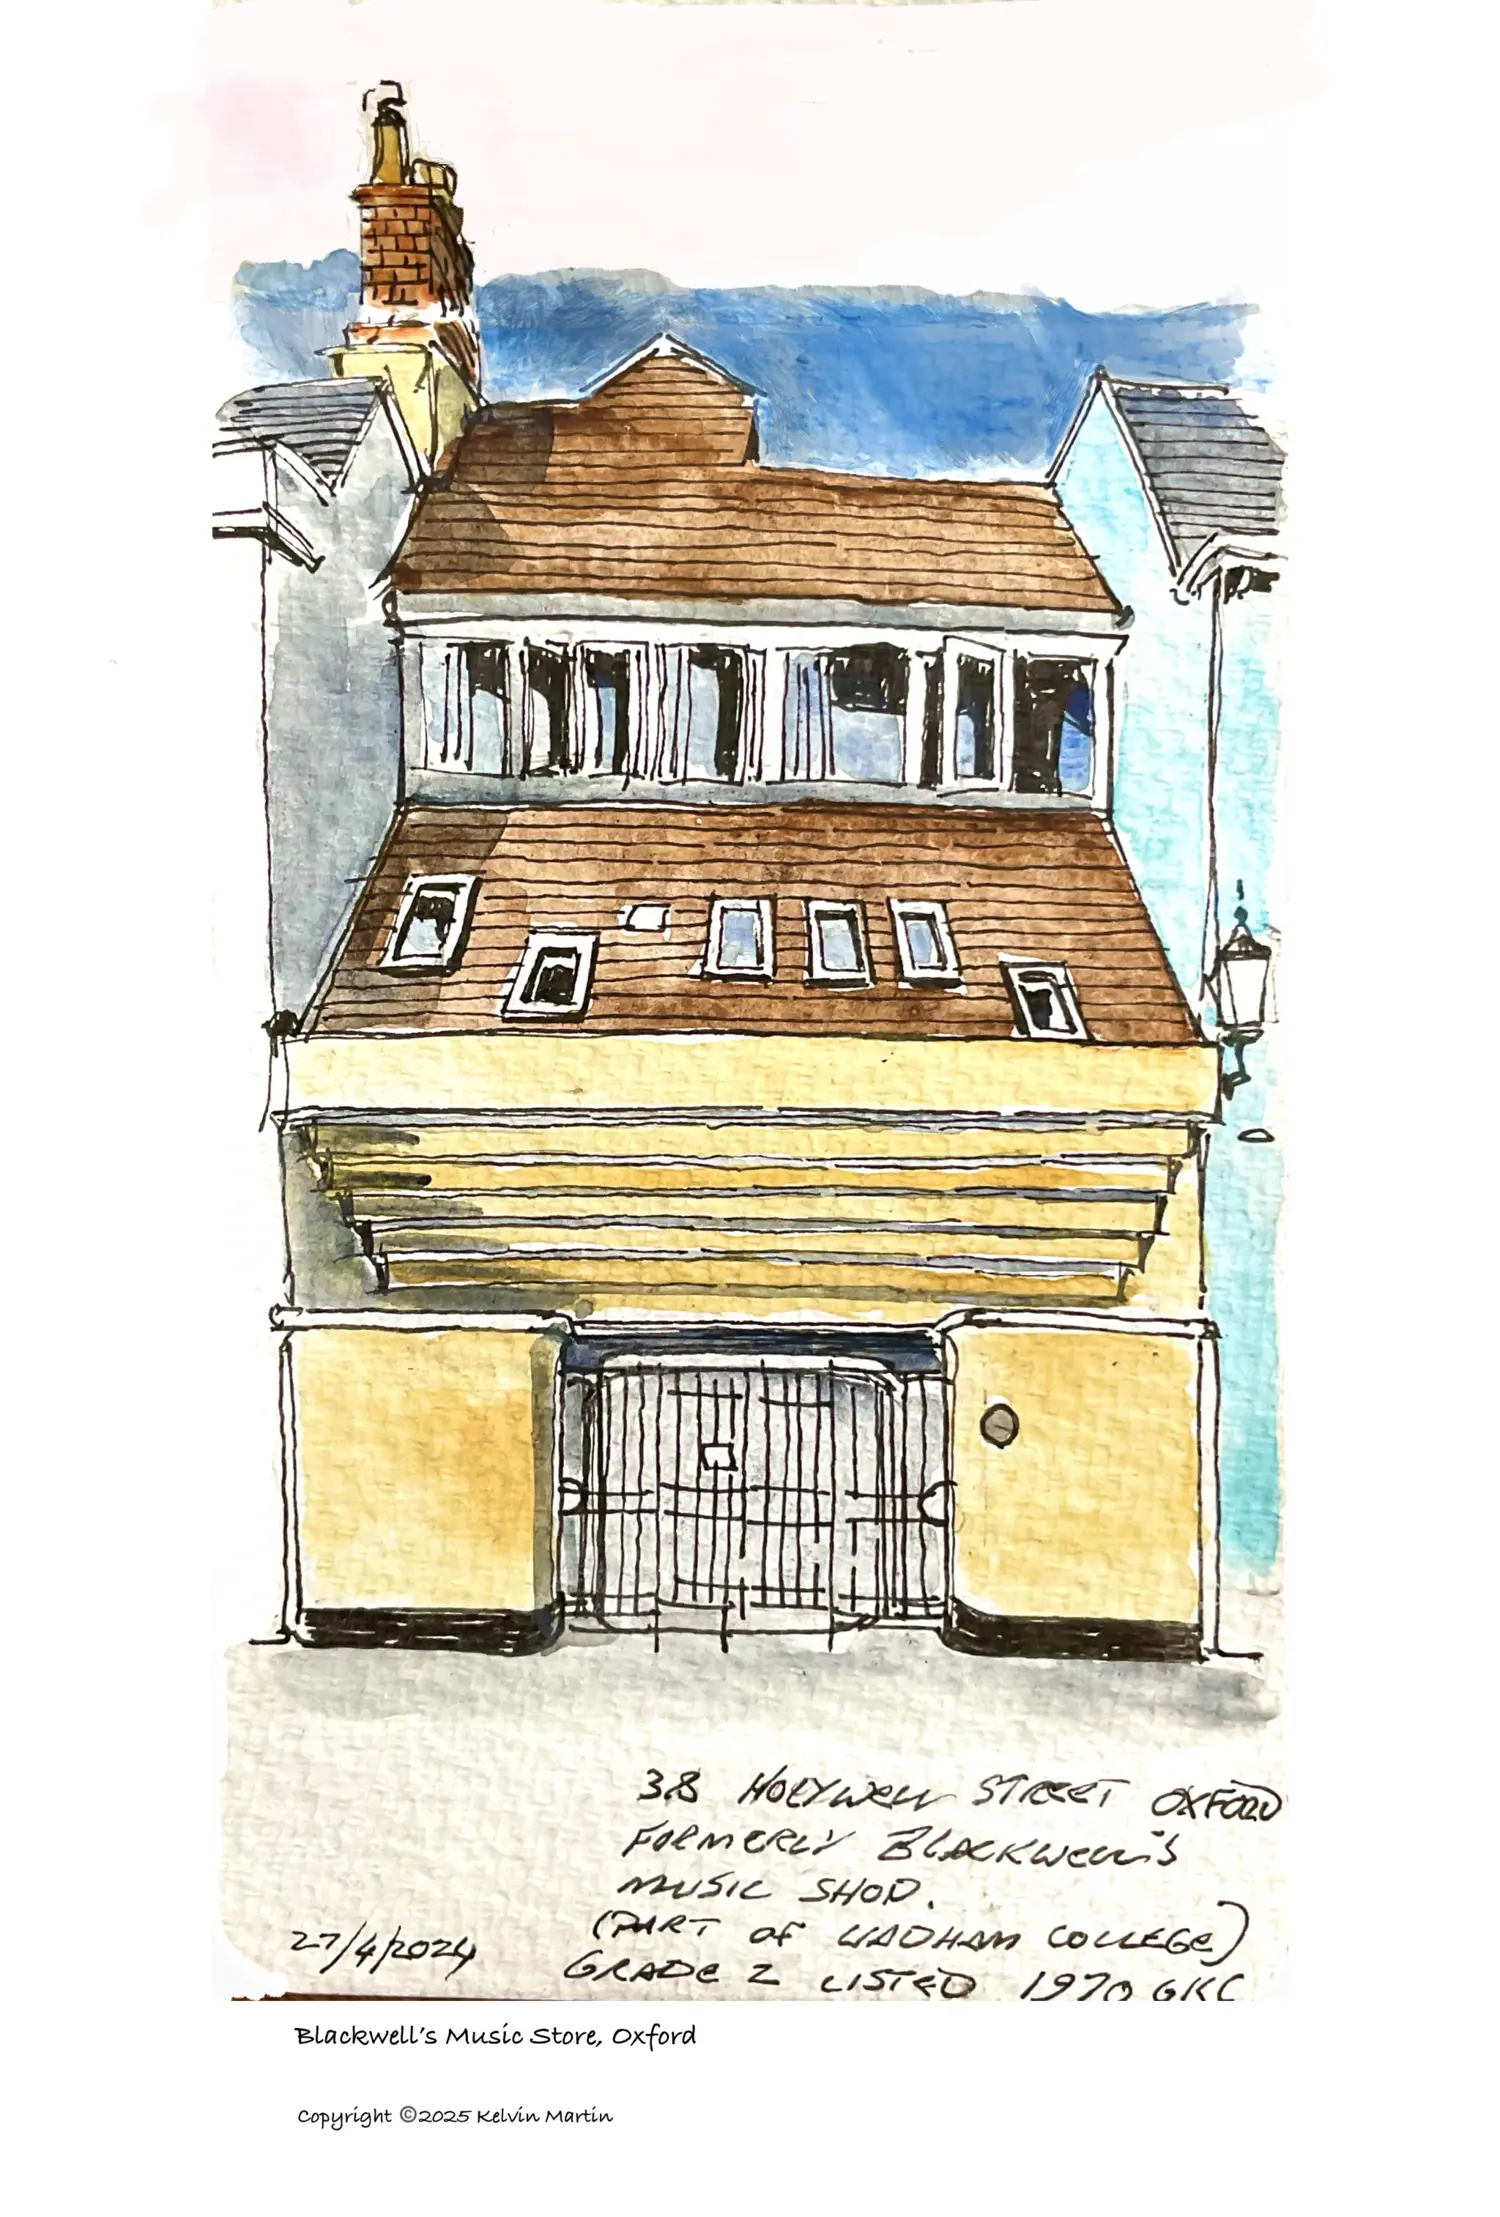 38 HOLYWELL STREET OXFORD
FORMERLY BLACKWELL'S
MUSIC SHOP.
(PART OF WADHAM COLLEGE)
27/4/2024
GRADE 2 LISTED 1970 GKC
Blackwell's Music Store, Oxford
Copyright ©2025 Kelvin Martin